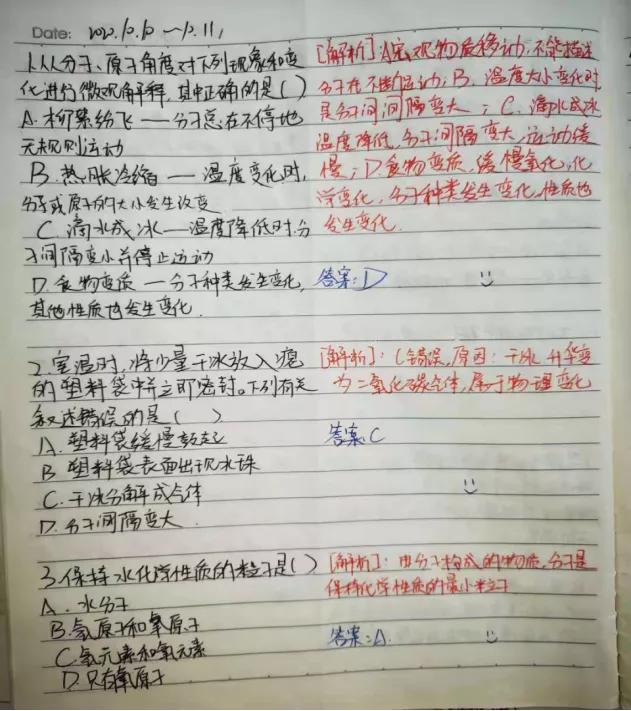 Date: 2022.10.10 ~10.11
1.从分子、原子角度对下列现象和变
化进行微观解释,其中正确的是( )
A.柳絮纷飞——分子总在不停地
无规则运动
B.热胀冷缩——温度变化时,
分子或原子的大小发生改变
C.滴水成冰——温度降低时,分
子间隔变小并停止运动
D.食物变质——分子种类发生变化,
其他性质也发生变化.
[解析]:A宏观物质移动,不能描述
分子在不断运动;B.温度大小变化时
是分子间间隔变大;C.滴水成冰
温度降低,分子间隔变大,运动缓
慢;D.食物变质,缓慢氧化,化
学变化,分子种类发生变化,性质也
发生变化.
答案:D
2.室温时,将少量干冰放入瘪
的塑料袋中并立即密封。下列有关
叙述错误的是( )
A.塑料袋缓慢鼓起
B.塑料袋表面出现水珠
C.干冰分解成气体
D.分子间隔变大.
[解析]:C错误,原因:干冰升华变
为二氧化碳气体,属于物理变化
答案:C
3.保持水化学性质的粒子是( )
A.水分子
B.氢原子和氧原子
C.氢元素和氧元素
D.只有氧原子
[解析]:由分子构成的物质,分子是
保持化学性质的最小粒子
答案:A.